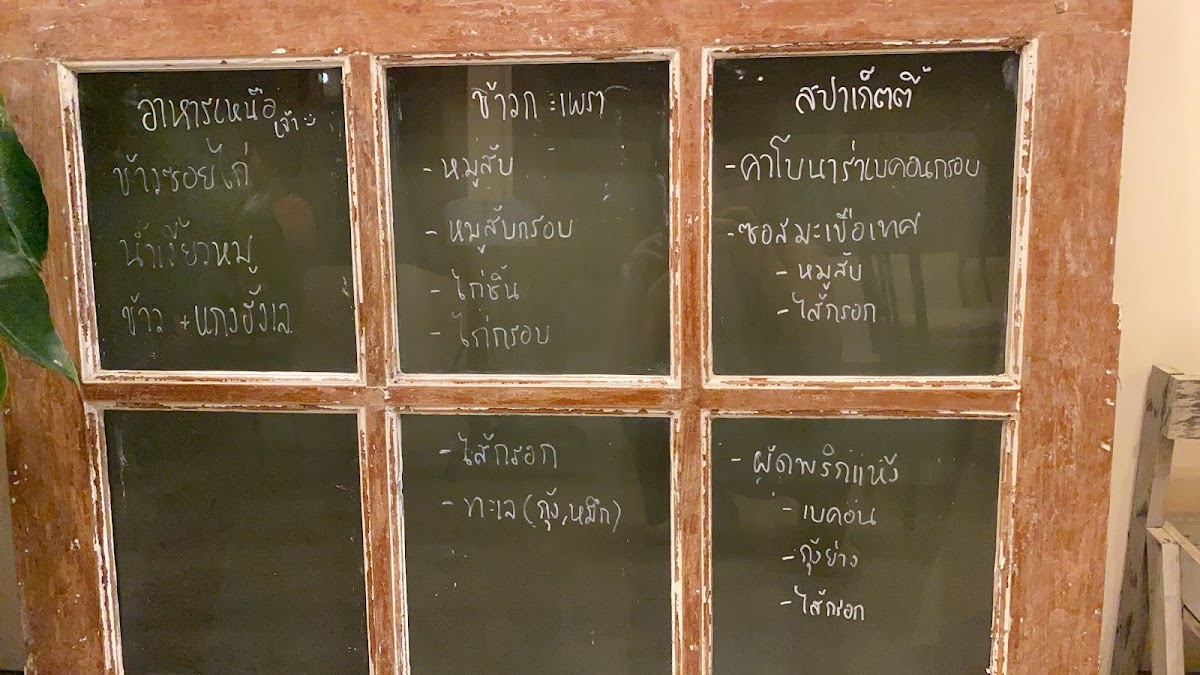 อาหารเหนือ
เจ้า
ข้าวซอยไก่
น้ำเงี้ยวหมู
ข้าว +แกงฮังเล
ข้าวกะเพรา
- หมูสับ
- หมูสับกรอบ
- ไก่ชิ้น
- ไก่กรอบ
- ไส้กรอก
- ทะเล (กุ้ง,หมึก)
สปาเก็ตตี้
- คาโบนาร่าเบคอนกรอบ
- ซอสมะเขือเทศ
- หมูสับ
- ไส้กรอก
- ผัดพริกแห้ง
- เบคอน
- กุ้งย่าง
- ไส้กรอก